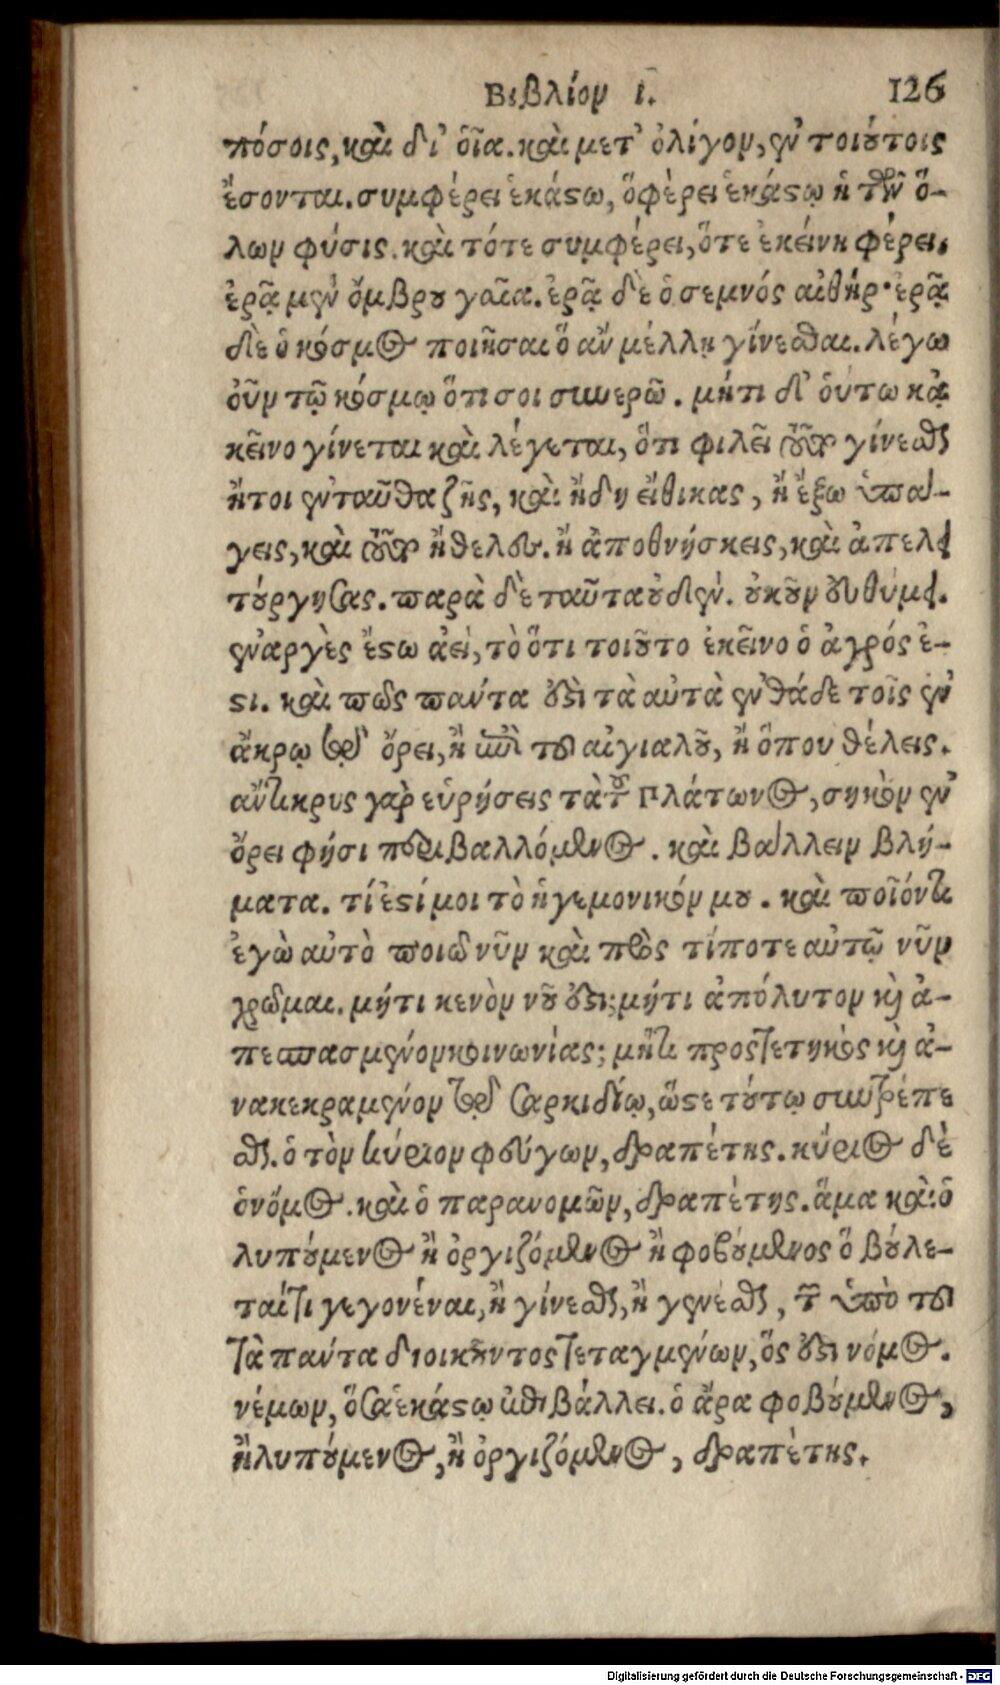 Βιβλίον ι. 126
πόσοις, καὶ δι' οἷα. καὶ μετ' ὀλίγον, ἐν τοιούτοις
ἔσονται. συμφέρει ἑκάστω, ὃ φέρει ἑκάστῳ ἡ τῶν ὅ-
λων φύσις. καὶ τότε συμφέρει, ὅτε ἐκείνη φέρει.
ἐρᾷ μὲν ὄμβρου γαῖα. ἐρᾷ δὲ ὁ σεμνός αἰθήρ· ἐρᾷ
δὲ ὁ κόσμος ποιῆσαι ὃ ἂν μέλλῃ γίνεσθαι. λέγω
οὖν τῷ κόσμῳ ὅτι σοι συνερῶ. μήτι δ' οὕτω κἀ
κεῖνο γίνεται καὶ λέγεται, ὅτι φιλεῖ τοῦτο γίνεσθαι
ἤτοι ἐνταῦθα ζῇς, καὶ ἤδη εἴθικας, ἢ ἔξω ὑπά-
γεις, καὶ τοῦτο ἤθελες. ἢ ἀποθνήσκεις, καὶ ἀπελει
τούργησας. παρὰ δὲ ταῦτα οὐδέν. οὐκοῦν εὐθύμει.
ἐναργὲς ἔστω ἀεὶ, τὸ ὅτι τοιοῦτο ἐκεῖνο ὁ ἀγρός ἐ-
στι. καὶ πῶς πάντα ἐστὶ τὰ αὐτὰ ἐνθάδε τοῖς ἐν
ἄκρῳ τῷ ὄρει, ἢ ἐπὶ τοῦ αἰγιαλοῦ, ἢ ὅπου θέλεις.
ἄντικρυς γὰρ εὑρήσεις τὰ τοῦ Πλάτωνος, σηκὸν ἐν
ὄρει φήσι περιβαλλόμενος. καὶ βάλλειν βλή-
ματα. τί ἐστί μοι τὸ ἡγεμονικόν μου. καὶ ποῖόν τι
ἐγὼ αὐτὸ ποιῶ νῦν καὶ πρὸς τί ποτε αὐτῷ νῦν
χρῶμαι. μήτι κενὸν νοῦ ἐστι; μήτι ἀπόλυτον καὶ ἀ-
πεσπασμένον κοινωνίας; μήτι προστετηκὸς καὶ ἀ-
νακεκραμένον τῷ σαρκιδίῳ, ὥστε τούτῳ συντρέπε
σθαι. ὁ τὸν κύριον φεύγων, δραπέτης. κύριος δὲ
ὁ νόμος. καὶ ὁ παρανομῶν, δραπέτης. ἅμα καὶ ὁ
λυπούμενος ἢ ὀργιζόμενος ἢ φοβούμενος ὃ βούλε-
ταί τι γεγονέναι, ἢ γίνεσθαι, ἢ γενέσθαι, τῶν ὑπὸ τοῦ
τὰ πάντα διοικοῦντος τεταγμένων, ὅς ἐστι νόμος.
νέμων, ὅσα ἑκάστῳ ἐπιβάλλει. ὁ ἄρα φοβούμενος,
ἢ λυπούμενος, ἢ ὀργιζόμενος, δραπέτης.
Digitalisierung gefördert durch die Deutsche Forschungsgemeinschaft - DFG